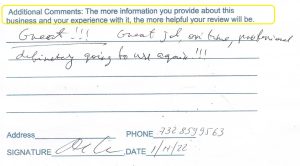 Additional Comments: The more information you provide about this
business and your experience with it, the more helpful your review will be.
Great!!! Great job on time, professional
definetley going to use again!!!
Address PHONE 732 8599563
SIGNATURE DATE 1/14/22